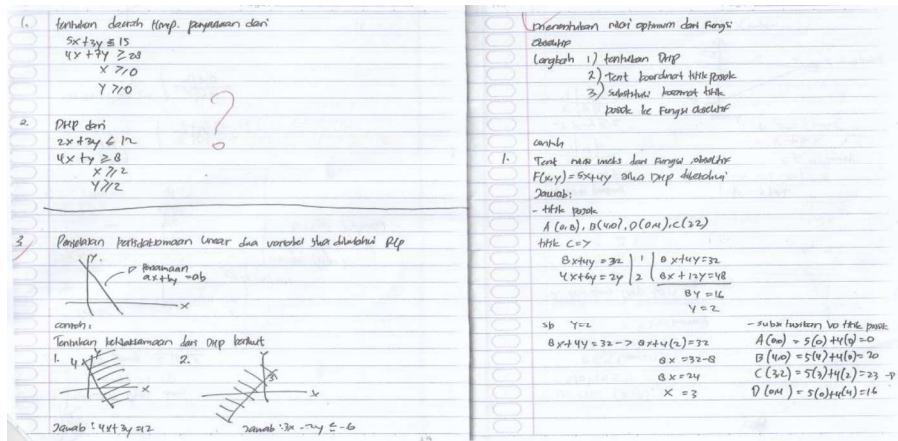 1. tentukan daerah Himp. penyelesaian dari
5x+3y ≤ 15
4x +7y ≥ 28
x ≥ 0
y ≥ 0
?
2. DHP dari
2x+3y ≤ 12
4x +y ≥ 8
x ≥ 2
y ≥ 2
3. Penyelesaian pertidaksamaan linear dua variabel jika diketahui
y
Persamaan
ax+by =ab
x
contoh :
Tentukan ketidaksamaan dari DHP berikut
1. 4 x
2. 3 x
Jawab : 4x+3y =12
Jawab : 3x -2y ≤ -6
menentukan nilai optimum dari Fungsi
Obsektip
Langkah 1) tentukan DHP
2) Tent koordinat titik pojok
3) substitusi koordinat titik
pojok ke Fungsi obsektif
contoh
1. Tent nilai maks dari Fungsi obsektif
F(x,y) = 5x+4y jika DHP diketahui
Jawab :
- titik pojok
A (0,0), B(4,0), D(0,4), C(2,2)
titik C =>
8x+4y = 32 | 1 | 8x+4y=32
4x+6y = 24 | 2 | 8x + 12y=48
8y =16
y = 2
sb y=2
8x+4y = 32 -> 8x+4(2) =32
8x =32-8
8x =24
x =3
- substitusikan ke titik pojok
A(0,0) = 5(0)+4(0)=0
B(4,0) =5(4)+4(0)= 20
C (3,2) = 5(3)+4(2)=23
D (0,4) = 5(0)+4(4)=16